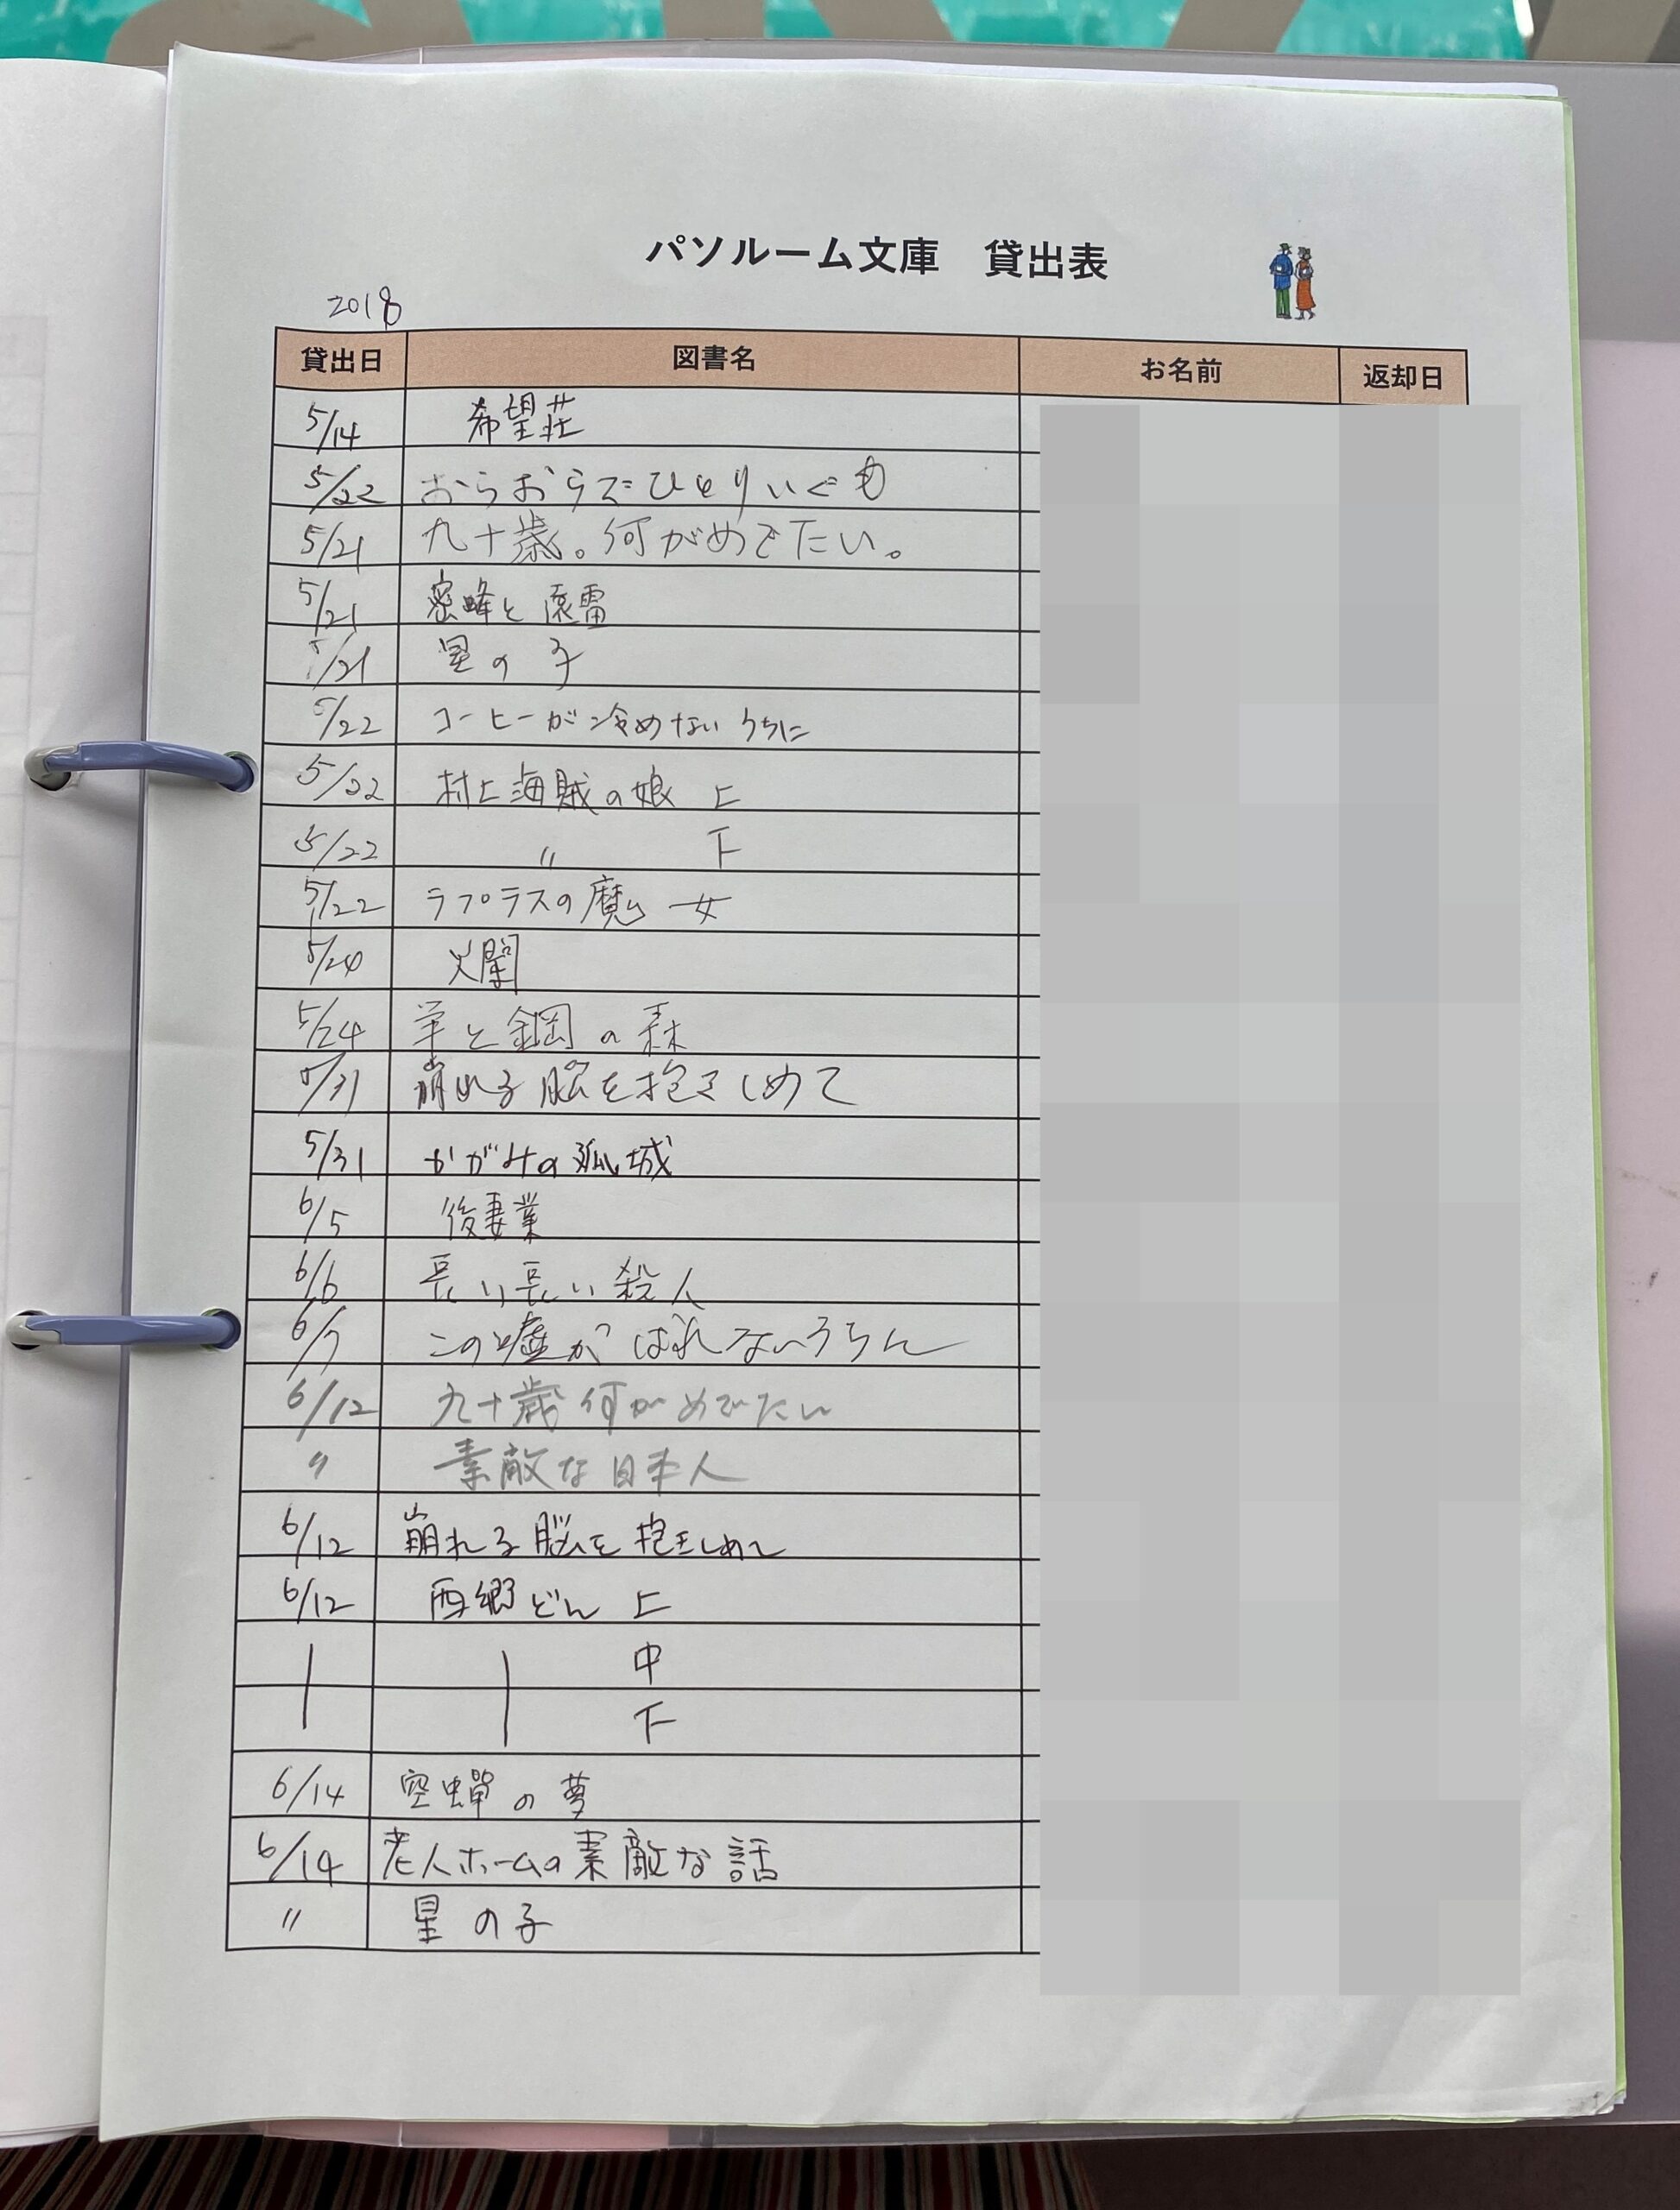 パソルーム文庫 貸出表
2018
貸出日 図書名 お名前 返却日
5/14 希望荘
5/22 おらおらでひとりいぐも
5/21 九十歳。何がめでたい。
5/21 蜜蜂と遠雷
5/21 星の子
5/22 コーヒーが冷めないうちに
5/22 村上海賊の娘 上
5/22 〃 下
5/22 ラプラスの魔女
5/24 火闇
5/24 羊と鋼の森
5/31 崩れる脳を抱きしめて
5/31 かがみの孤城
6/5 後妻業
6/6 長い長い殺人
6/7 この嘘がばれないうちに
6/12 九十歳何がめでたい
〃 素敵な日本人
6/12 崩れる脳を抱きしめて
6/12 西郷どん 上
中
下
6/14 空蟬の夢
6/14 老人ホームの素敵な話
〃 星の子